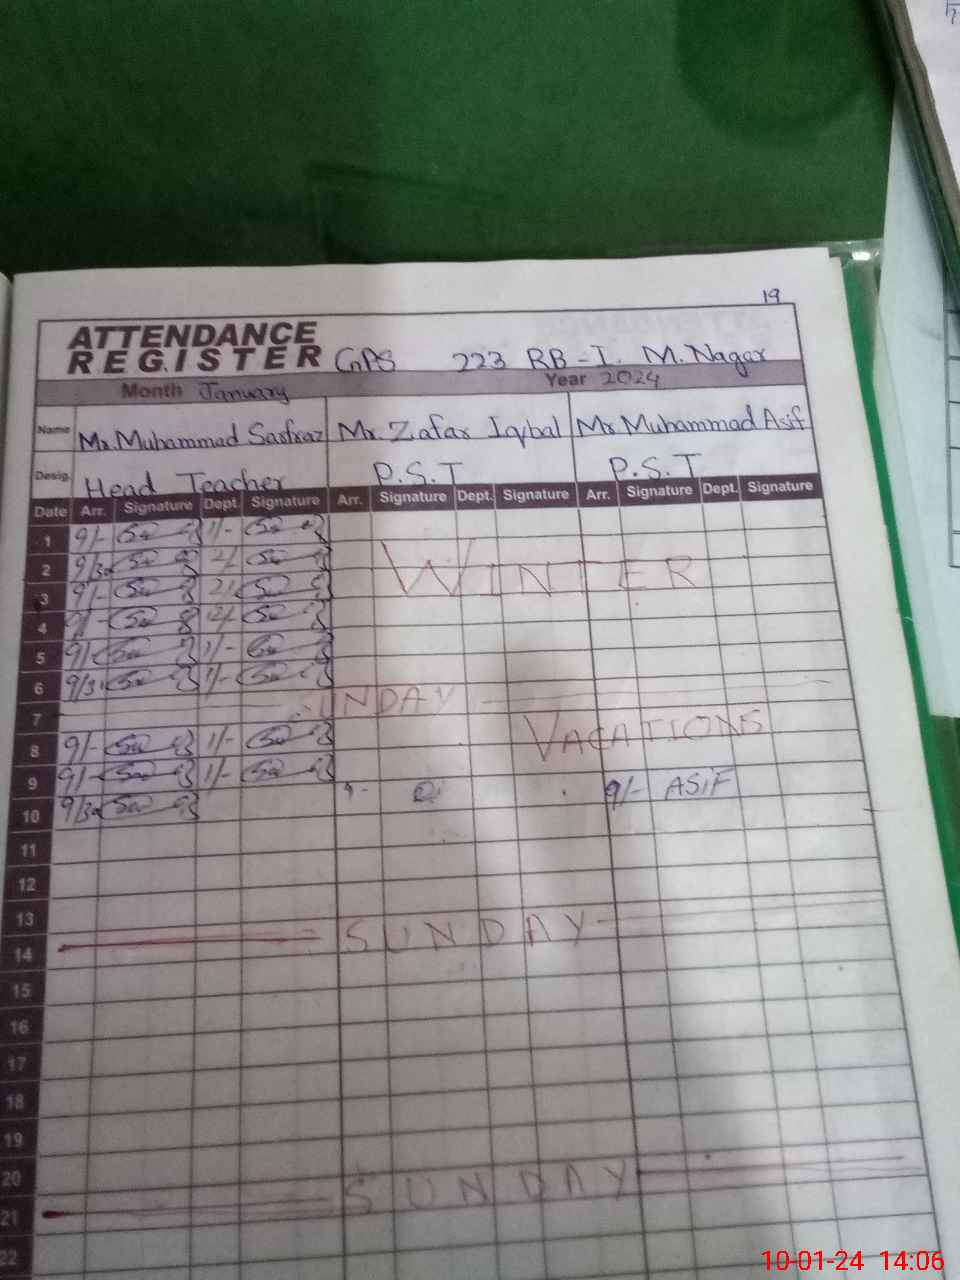 19
ATTENDANCE
REGISTER GPS 223 RB-I. M. Nagar
Month January Year 2024
Name Mr. Muhammad Sarfraz Mr. Zafar Iqbal Mr. Muhammad Asif
Desig. Head Teacher P.S.T P.S.T
Date Arr. Signature Dept. Signature Arr. Signature Dept. Signature Arr. Signature Dept. Signature
1 9/- 1/-
2 9/30 2/- WINTER
3 9/- 2/-
4 9/- 12/-
5 9/- 1/-
6 9/30 1/-
7 SUNDAY
VACATIONS
8 9/- 1/-
9 9/- 1/-
10 9/30 9/- ASIF
11
12
13
14 SUNDAY
15
16
17
18
19
20
21 SUNDAY
22
10-01-24 14:06